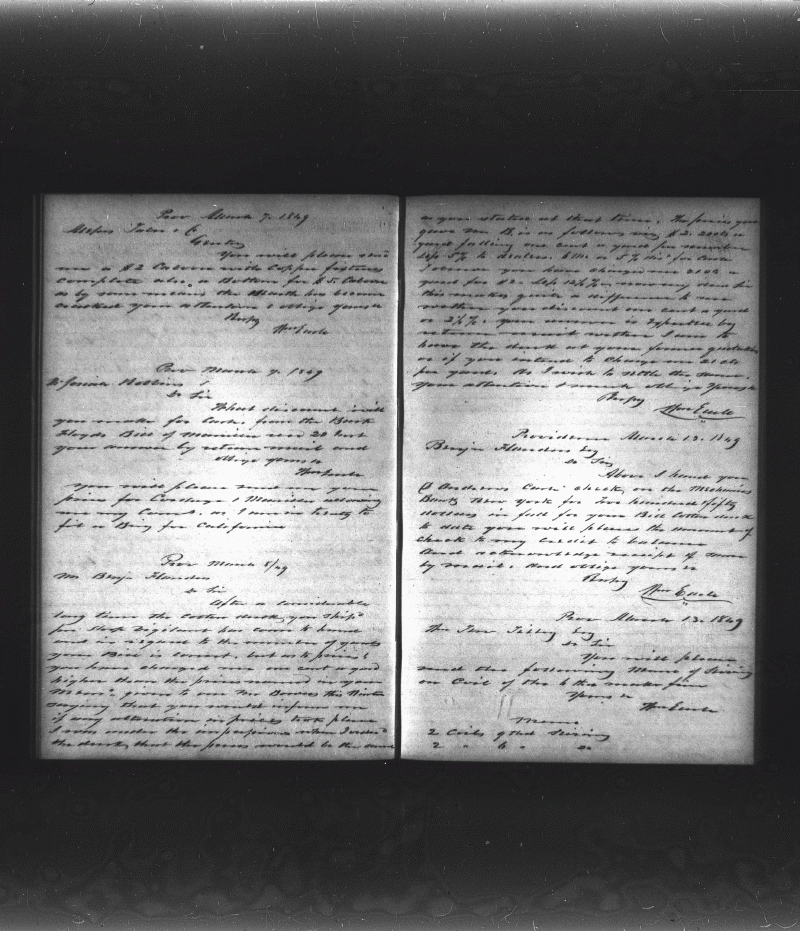 Prov March 7. 1849
Messrs
Gentn
You will please send
me a #2 Caboose with Copper fixtures
complete also a Bottom for #5 Caboose
as by some means the Hearth has become
cracked your attention & oblige yours &
Respy
Wm Earle
Prov March 7. 1849
Josiah Robbins
Dr Sir
What discount will
you make for Cash from the Bank
Floyds Bill of Manilla 20
your answer by return mail and
oblige yours &
Wm Earle
You will please send me your
price for Cordage & Manilla allowing
me my Comn. as I am in treaty to
fit a Brig for California
Prov March 8/49
Mr Benja Flanders
Dr Sir
After a considerable
long time the Cotton duck you ship
per Slp Vigilant has come to hand
and is right as to the number of yards
your Bill is correct, but as to price
you have charged me one cent a yard
higher than the prices named in your
Memo given to me Mr this Winter
saying that you would inform me
if any alteration in prices took place
I was under the impression when I
the duck, that the prices would be the same
as you stated at that time. The prices you
gave me is as follows viz #2. 20cts a
yard falling one cent a yard per number
less 5% to dealers. 6 Mo. or 5% dis for Cash
I you have charged me 21cts a
yard for #2. less 12½%. now my dear Sir
this makes quite a difference to me
whether you discount one cent a yard
or 2½%. your answer is expected by
return mail whether I am to
have the duck at your former quotation
or if you intend to charge me 21 cts
per yard. As I wish to settle the same.
your attention & much oblige yours &
Respy
Wm Earle
Providence March 13. 1849
Benja Flanders Esq
Dr Sir
Above I hand you
Andrews Cash check, on the Mechanics
Bank New York for Two hundred & fifty
dollars in full for your Bill Cotton duck
to date you will please the amount of
check to my credit to balance
And acknowledge receipt of same
by mail. And oblige yours &
Respy
Wm Earle
Prov March 13. 1849
Wm Tilley Esq
Dr Sir
You will please
send the following Memo of Seizing
on Coil of the 6 thd make fine
Yours &
Wm Earle
Memo
2 Coils 9 thd Seizing
2 " 6 " Do